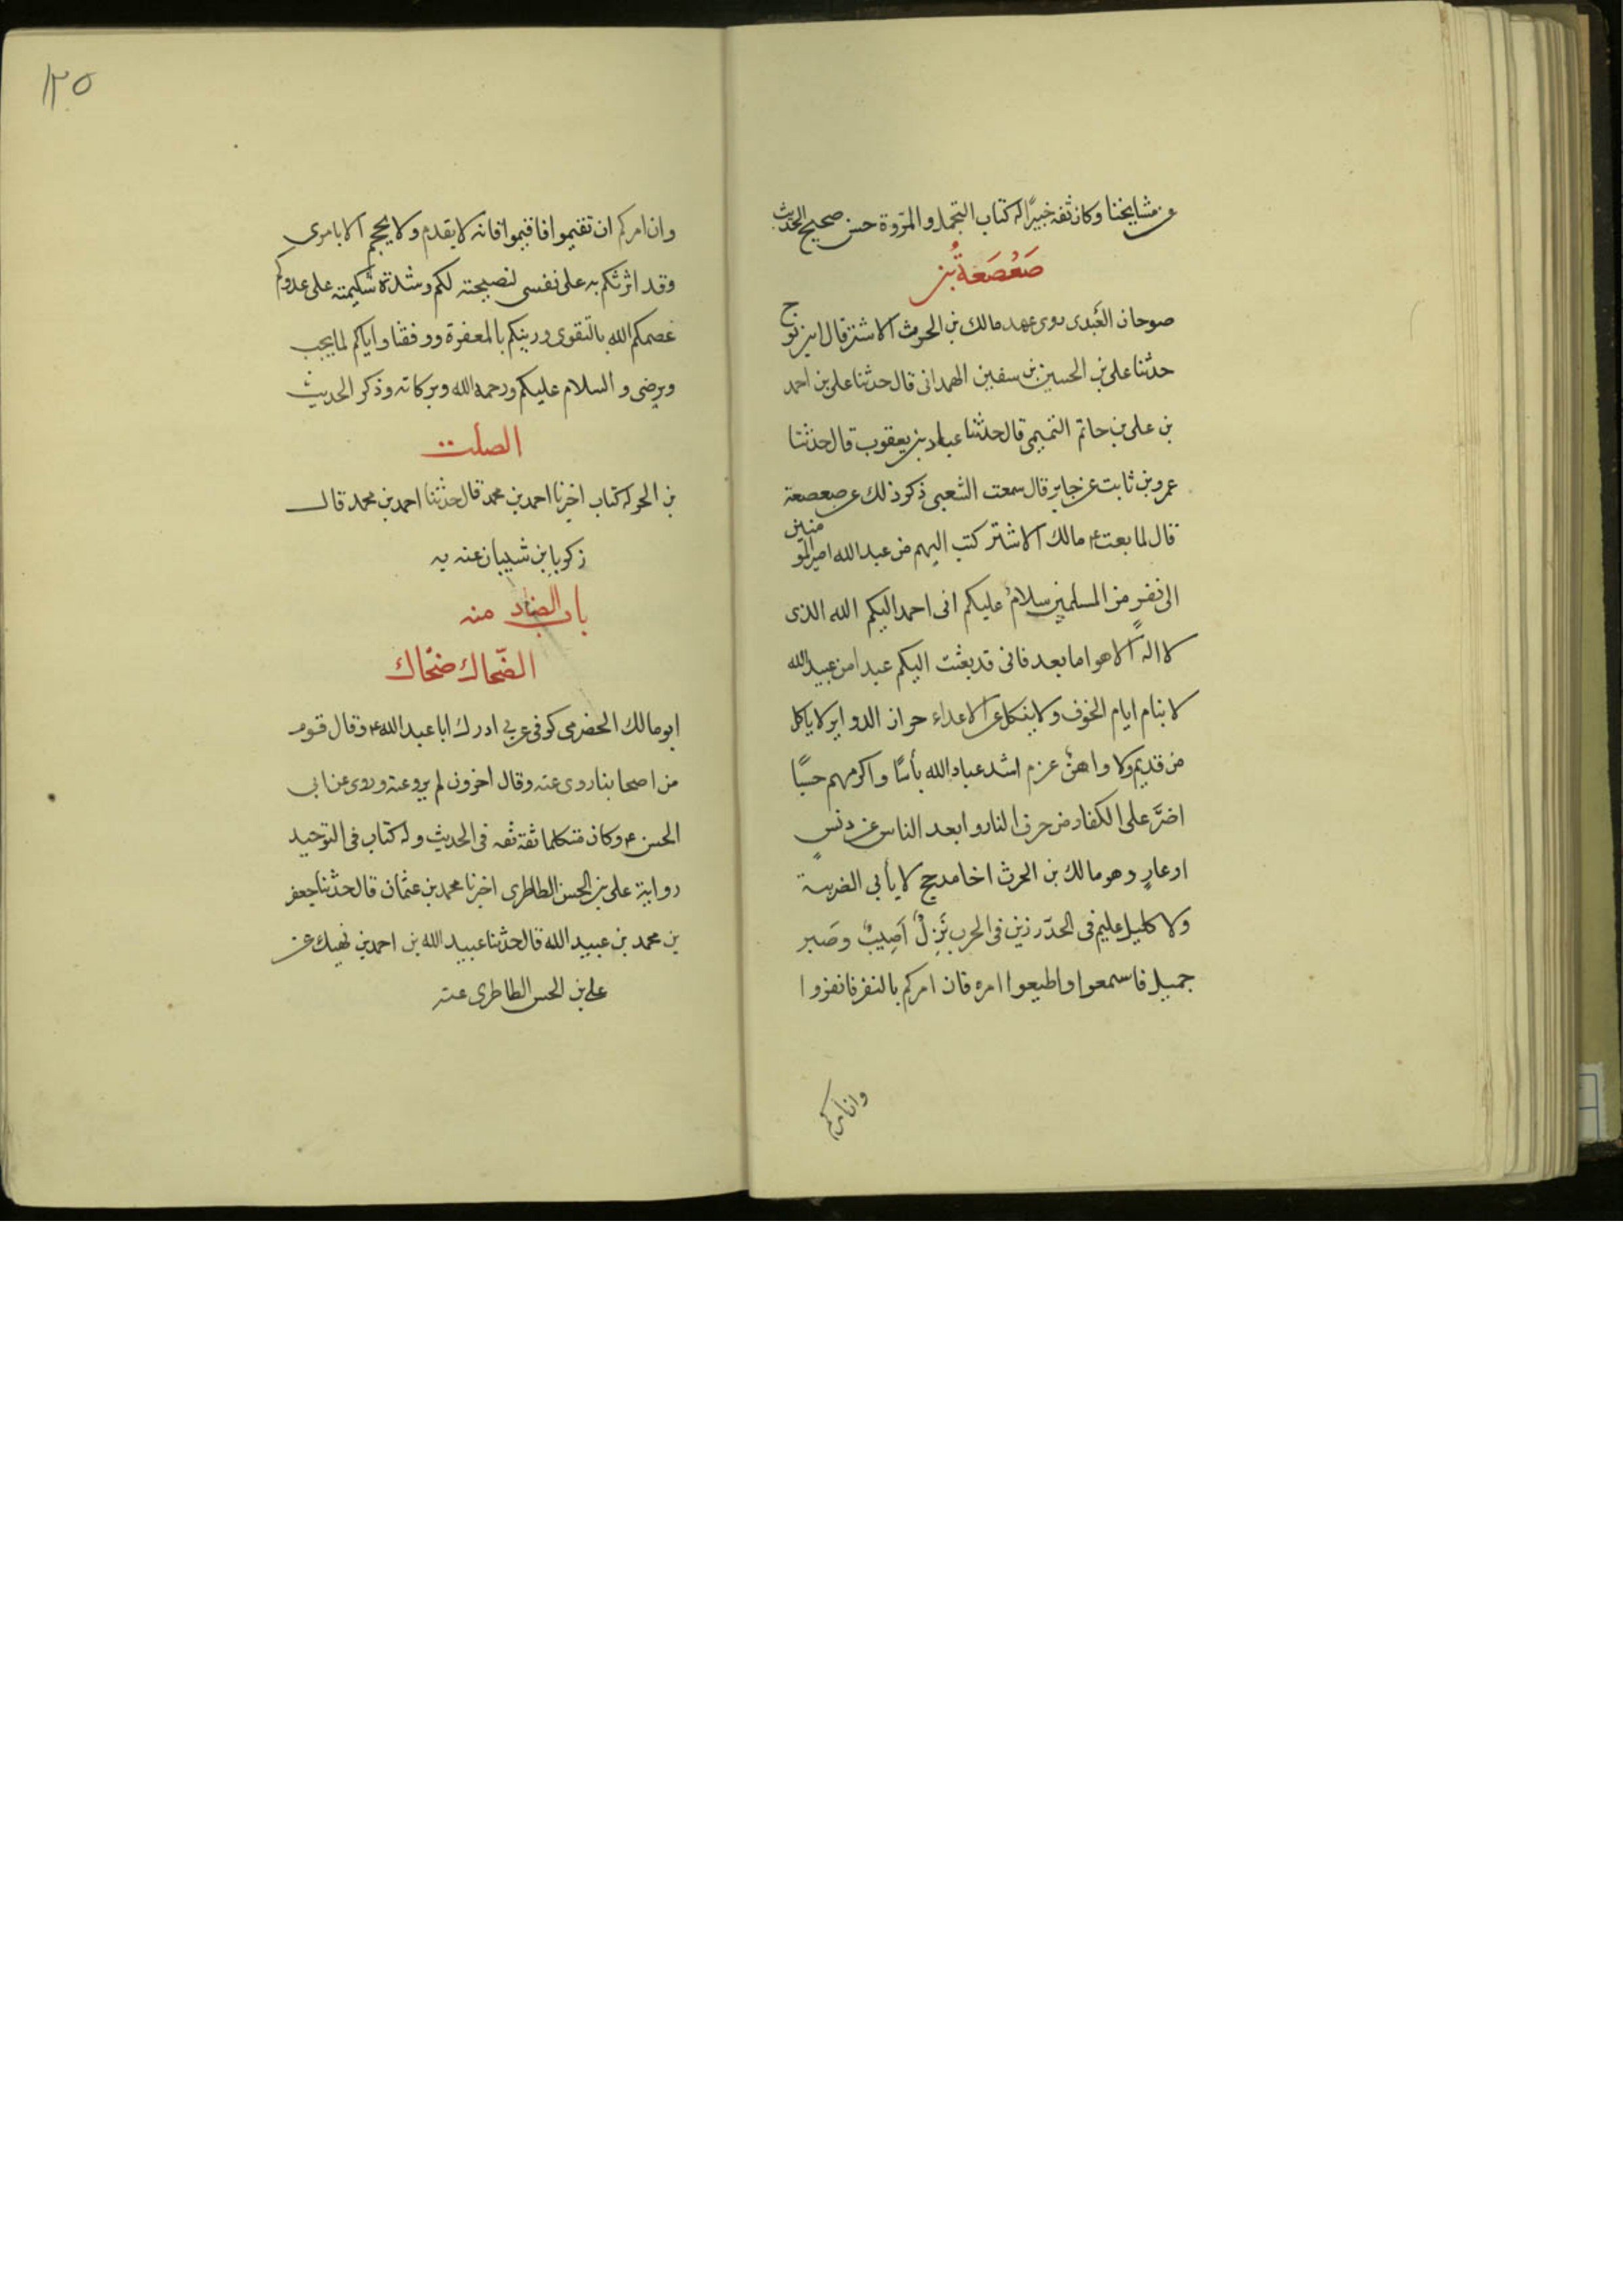 عن مشايخنا وكان ثقة خبيرًا له كتاب التجمل والمروة حسن صحيح الحديث
صَعْصَعَةُ بن
صوحان العَبدى روى عهد مالك بن الحرث الاشتر قال ابن نوح
حدثنا على بن الحسين بن سفين الهمدانى قال حدثنا على بن احمد
بن على بن حاتم التميمى قال حدثنا عباد بن يعقوب قال حدثنا
عمرو بن ثابت عن جابر قال سمعت الشعبى ذكر ذلك عن صعصعة
قال لما بعث ع مالك الاشتر كتب اليهم من عبد الله امير المومنين
الى نفرٍ من المسلمين سلامٌ عليكم انى احمد اليكم الله الذى
لا اله الا هو اما بعد فانى قد بعثت اليكم عبدًا من عبيد الله
لا ينام ايام الخوف ولا ينكل عن الاعداء حراز الدواير لا ياكل
من قديم ولا واهنٌ عزم اشد عباد الله بأسًا واكرمهم حسبًا
اضرَّ على الكفار من حرق النار وابعد الناس عن دنسٍ
او عارٍ وهو مالك بن الحرث اخا مدحج لا يأبى الضريبة
ولا كليل عليم فى الحدّ رزين فى الحرب نَزِلٌ اَصِيبٌ وصَبر
جميل فاسمعوا واطيعوا امره فان امركم بالنفر فانفروا
وان امركم
١٢٥
وان امركم ان تقيموا فاقيموا فانه لا يقدم ولا يحجم الا بامرى
وقد اثرتكم به على نفسى لنصيحته لكم وشدة شكيمته على عدوكم
عصمكم الله بالتقوى وزينكم بالمغفرة ووفقنا واياكم لما يحب
ويرضى والسلام عليكم ورحمة الله وبركاته وذكر الحديث
الصلت
بن الحر له كتاب اخبرنا احمد بن محمد قال حدثنا احمد بن محمد قال
زكريا بن شيبان عنه به
باب الضاد منه
الضّحاك ضحّاك
ابو مالك الحضرمى كوفى عربي ادرك ابا عبد الله ع وقال قوم
من اصحابنا روى عنه وقال اخرون لم يرو عنه وروى عن ابى
الحسن ع وكان متكلما ثقة ثقه فى الحديث وله كتاب فى التوحيد
رواية على بن الحسن الطاطرى اخبرنا محمد بن عثمان قال حدثنا جعفر
بن محمد بن عبيد الله قال حدثنا عبيد الله بن احمد بن نهيك عن
على بن الحسن الطاطرى عنه